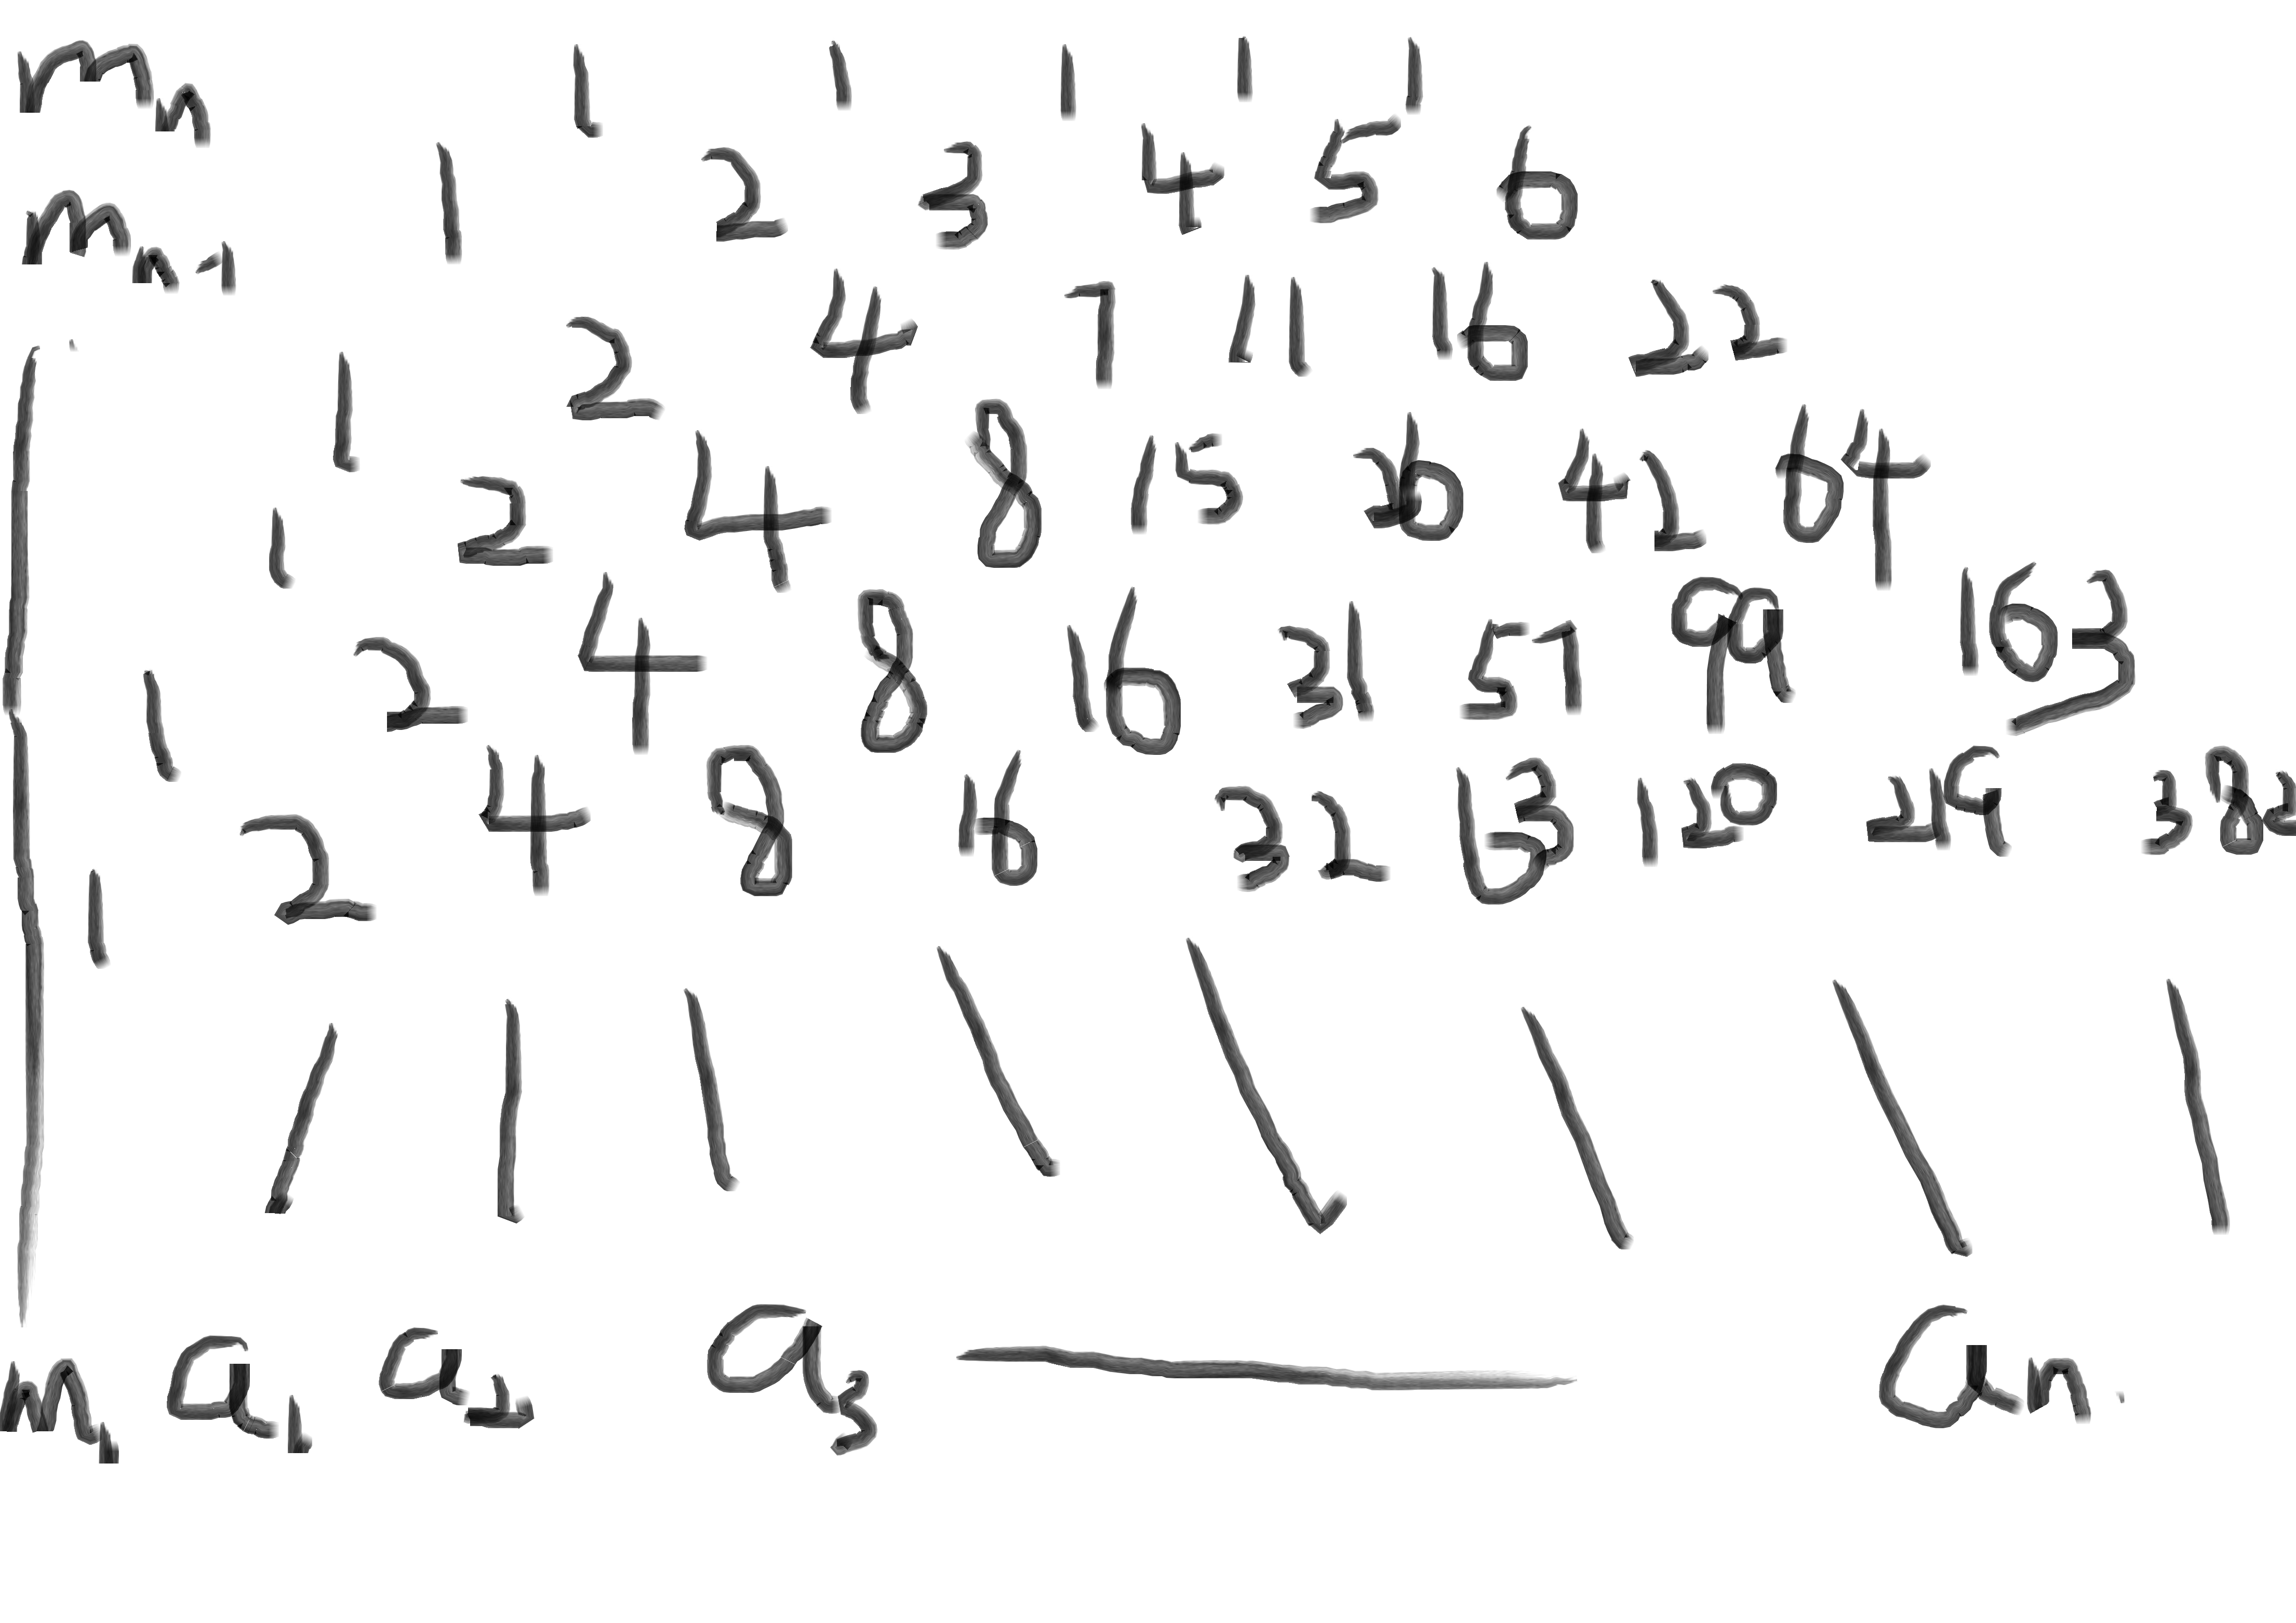 mₙ 1 1 1 1 1
mₙ₋₁ 1 2 3 4 5 6
1 2 4 7 11 16 22
1 2 4 8 15 26 42 64
1 2 4 8 16 31 57 99 163
1 2 4 8 16 32 63 120 219 382
m₁ a₁ a₂ a₃ aₙ.